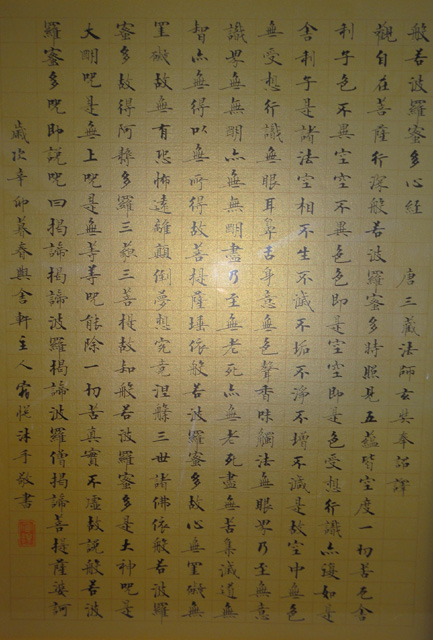 般若波羅蜜多心經 唐三藏法師玄奘奉詔譯
觀自在菩薩行深般若波羅蜜多時照見五蘊皆空度一切苦厄舍
利子色不異空空不異色色即是空空即是色受想行識亦復如是
舍利子是諸法空相不生不滅不垢不淨不增不減是故空中無色
無受想行識無眼耳鼻舌身意無色聲香味觸法無眼界乃至無意
識界無無明亦無無明盡乃至無老死亦無老死盡無苦集滅道無
智亦無得以無所得故菩提薩埵依般若波羅蜜多故心無罣礙無
罣礙故無有恐怖遠離顛倒夢想究竟涅槃三世諸佛依般若波羅
蜜多故得阿耨多羅三藐三菩提故知般若波羅蜜多是大神呪是
大明呪是無上呪是無等等呪能除一切苦真實不虛故說般若波
羅蜜多呪即說呪曰揭諦揭諦波羅揭諦波羅僧揭諦菩提薩婆訶
歲次辛卯暮春與舍軒主人沐手敬書